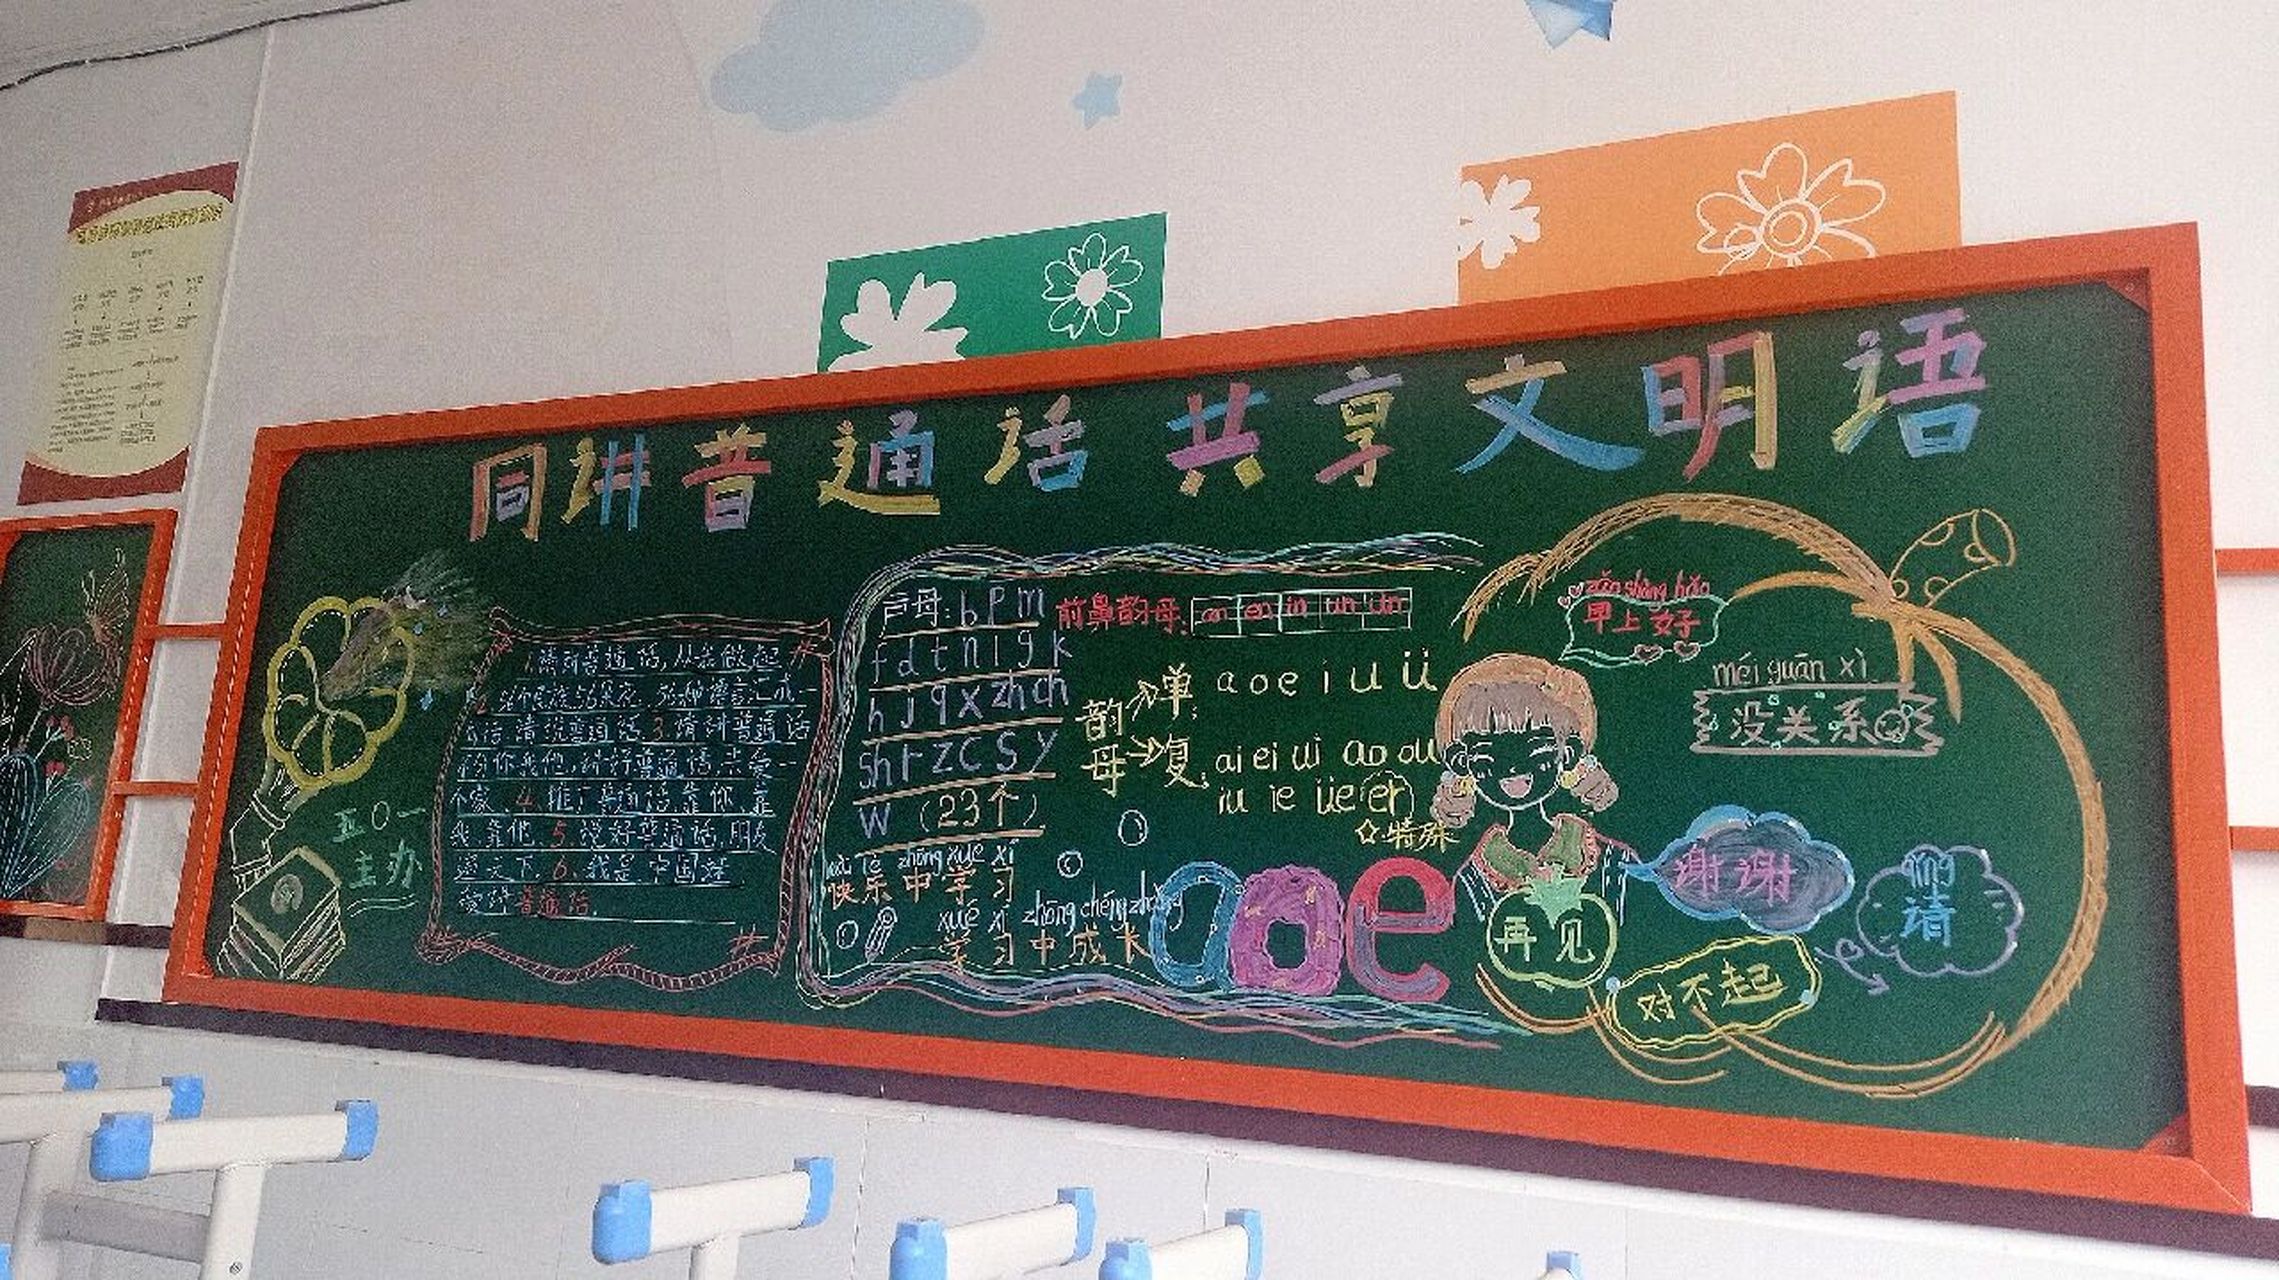 同讲普通话 共享文明语
五〇一
主办
1.请讲普通话,从我做起
2.56个民族56朵花,56种语言汇成一
句话请说普通话.3.请讲普通话
你我他,讲好普通话,共爱一
个家.4.推广普通话,靠你,靠
我,靠他.5.说好普通话,朋友
遍天下.6.我是中国娃
爱讲普通话.
声母:b p m
f d t n l g k
h j q x zh ch
sh r z c s y
w (23个)
kuài lè zhōng xué xí
快乐中学习
xué xí zhōng chéng zhǎng
学习中成长
前鼻韵母: an en in un ün
韵母
单: a o e i u ü
复: ai ei ui ao ou
iu ie üe er
☆特殊
aoe
zǎo shàng hǎo
早上好
méi guān xì
没关系
谢谢
再见
对不起
请